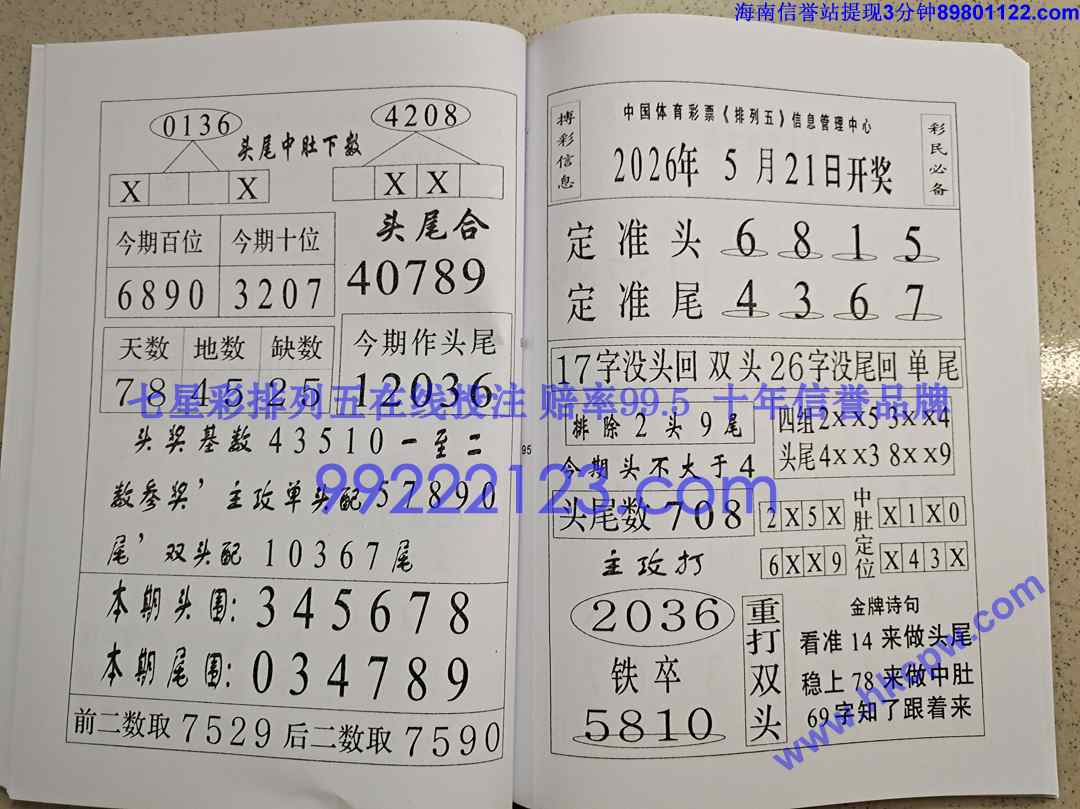 海南信誉站提现3分钟89801122.com
0136
4208
头尾中肚下数
X X
X X
今期百位 今期十位
6890 3207
头尾合
40789
天数 地数 缺数
78 45 25
今期作头尾
12036
七星彩排列五在线投注 赔率99.5 十年信誉品牌
头奖基数43510一至二
数参奖,主攻单头配57890
尾,双头配10367尾
99222123.com
本期头围:345678
本期尾围:034789
前二数取7529后二数取7590
95
搏彩信息
中国体育彩票《排列五》信息管理中心
2026年5月21日开奖
彩民必备
定准头6815
定准尾4367
17字没头回双头26字没尾回单尾
排除2头9尾
今期头不大于4
四组2XX5 3XX4
头尾4XX3 8XX9
头尾数708
2X5X
中肚定位
X1X0
主攻打
6XX9
X43X
2036
铁卒
5810
重打双头
金牌诗句
看准14来做头尾
稳上78来做中肚
69字知了跟着来
www.hkcpw.com